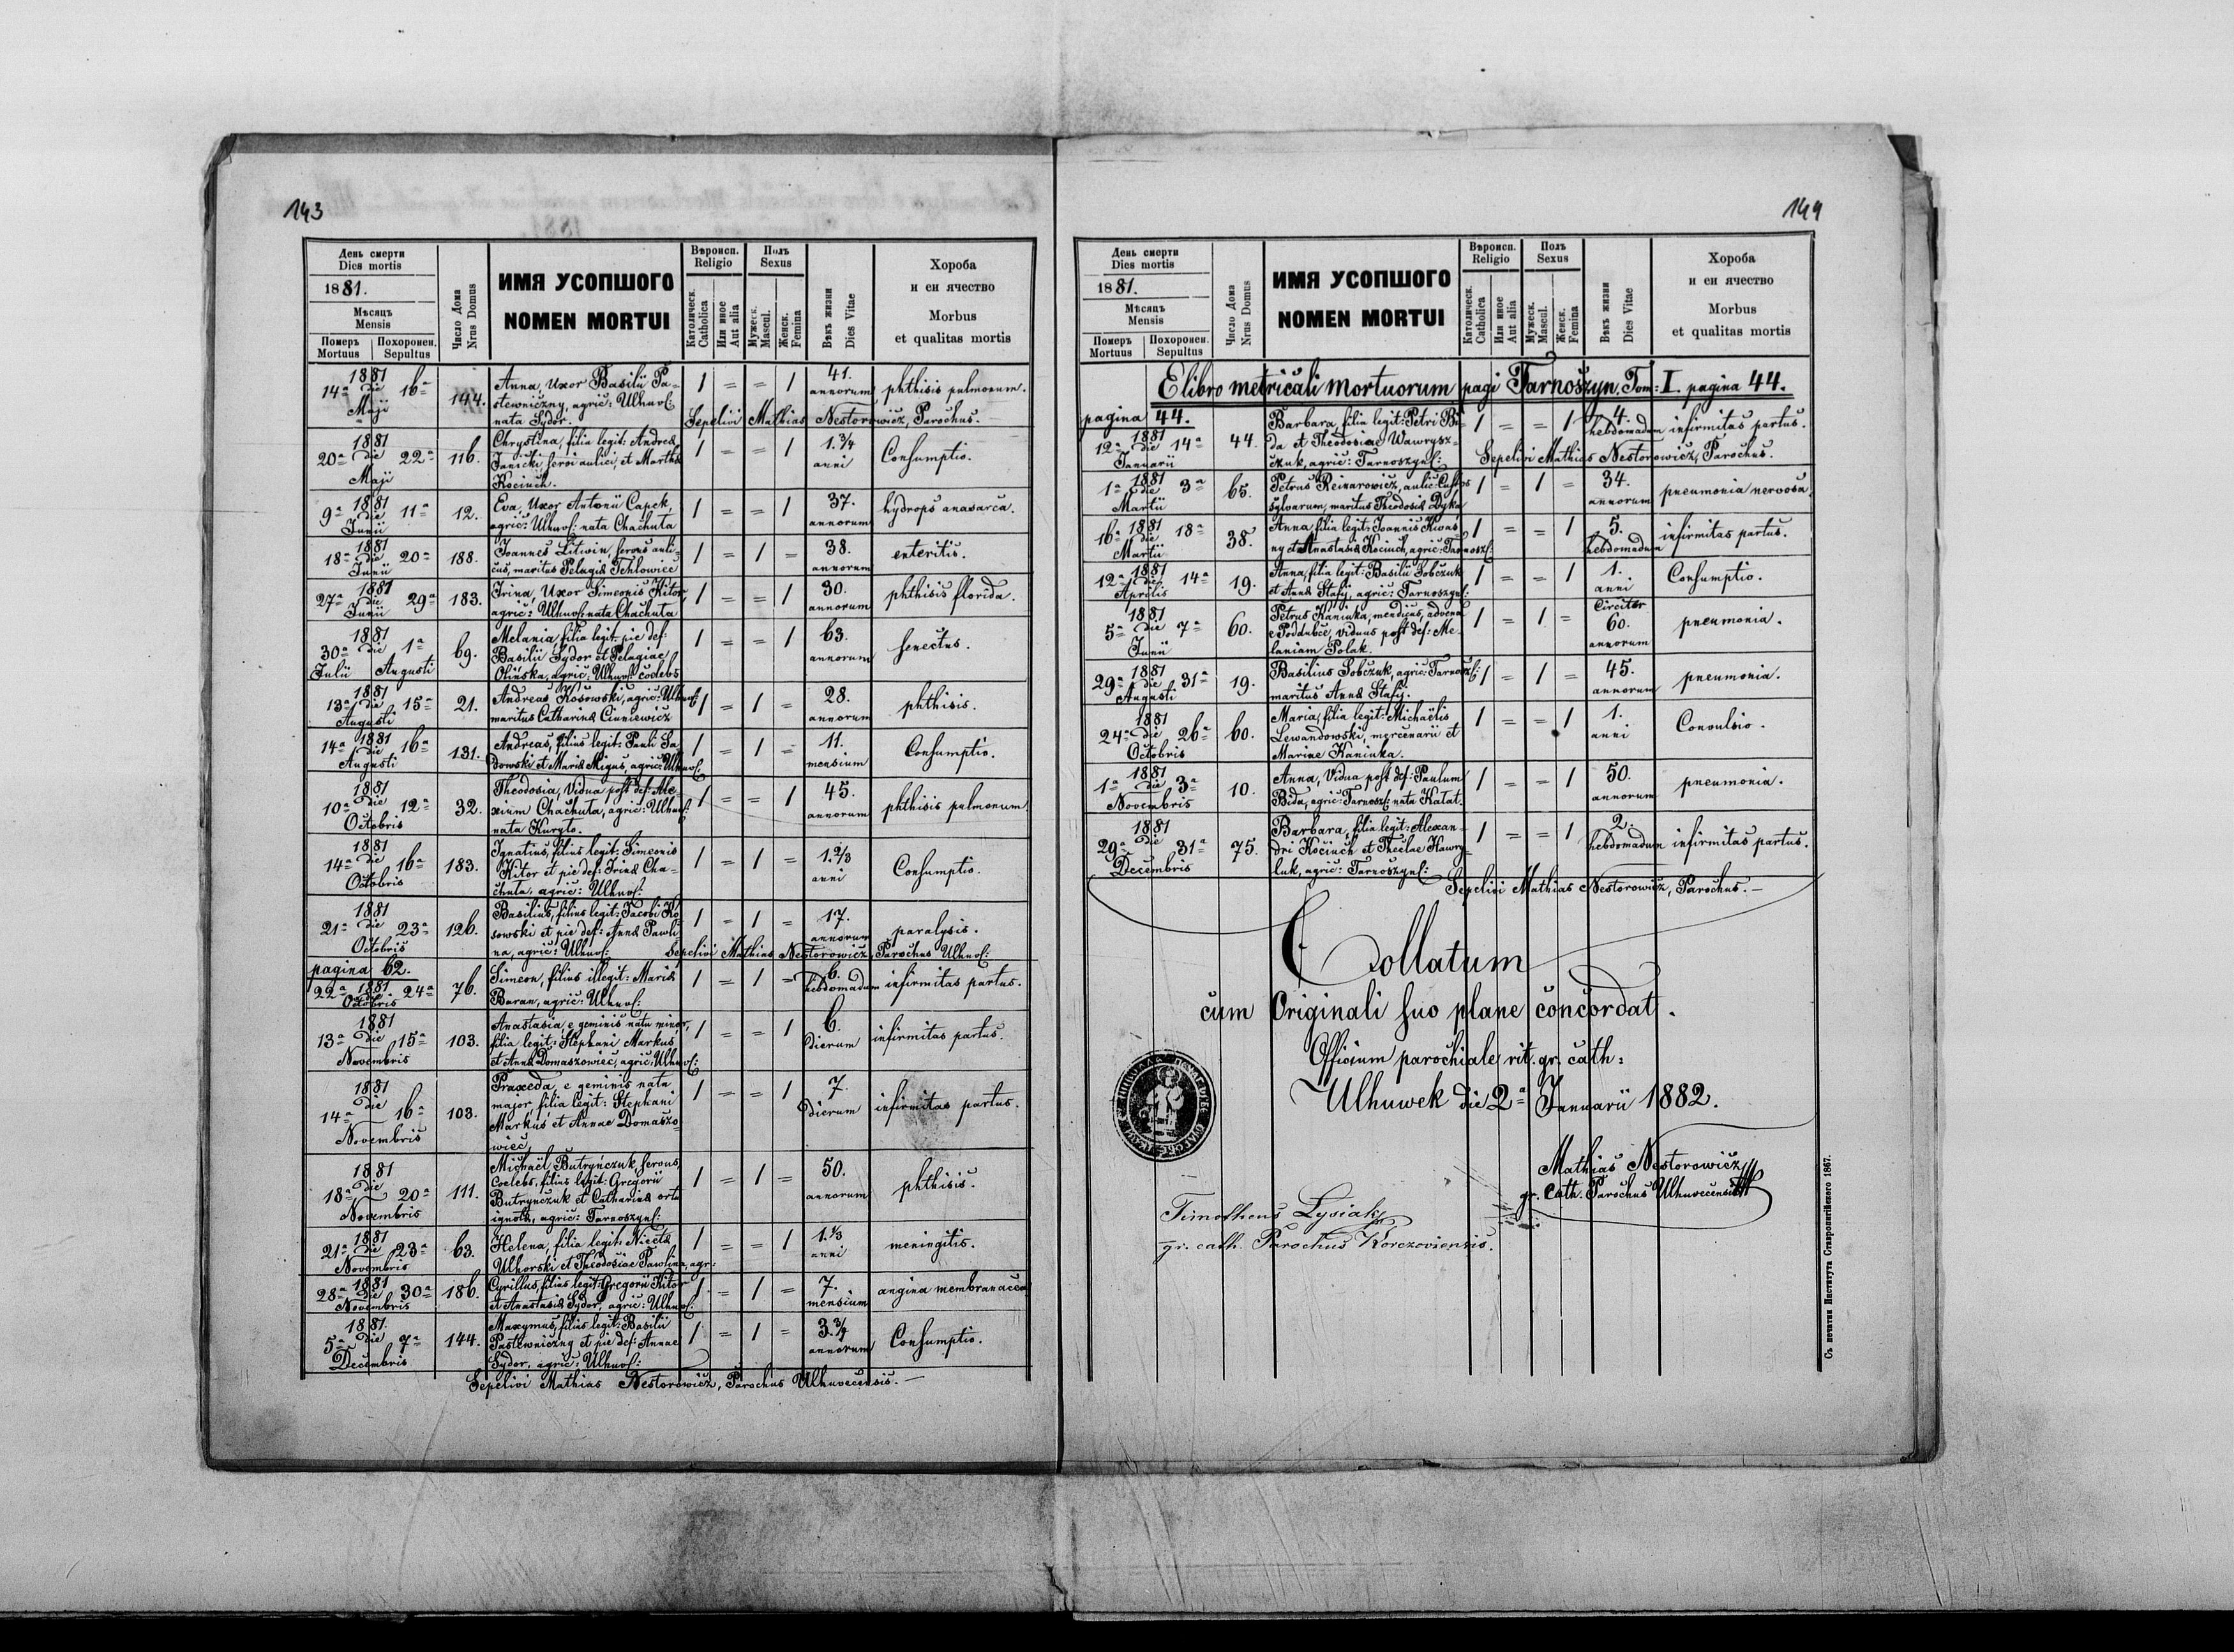 143
День смерти
Dies mortis
1881.
Мѣсяцъ
Mensis
Померъ Похоронен.
Mortuus Sepultus
Число Дома
Nrus Domus
ИМЯ УСОПШОГО
NOMEN MORTUI
Вѣроисп.
Religio
Католическ.
Catholica
Или иное
Aut alia
Полъ
Sexus
Мужеск.
Mascul.
Женск.
Femina
Вѣкъ жизни
Dies Vitae
Хороба
и еи ячество
Morbus
et qualitas mortis
1881
14ª die 16ª
Maji
144.
Anna, Uxor Basilii Pa-
stewniczny, agric: Ulhuvs:
nata Sydor.
1 = = 1
41.
annorum
phthisis pulmonum.
Sepelivi Mathias Nestorowicz, Parochus.
1881
20ª die 22ª
Maji
116.
Chrystina, filia legit: Andreæ
Janicki, servi aulici, et Marthæ
Kociuch.
1 = = 1
1.3/4
anni
Consumptio.
1881
9ª die 11ª
Junii
12.
Eva, Uxor Antonii Capek,
agric: Ulhuvs: nata Chachuta
1 = = 1
37.
annorum
hydrops anasarca.
1881
18ª die 20ª
Junii
188.
Joannes Litwin, servus auli-
cus, maritus Pelagiæ Tehlowiec
1 = 1 =
38.
annorum
enteritis.
1881
27ª die 29ª
Junii
183.
Irina, Uxor Simeonis Kitor,
agric: Ulhuvs: nata Chachuta
1 = = 1
30.
annorum
phthisis florida.
1881
30ª die 1ª
Julii Augusti
69.
Melania, filia legit: pie def:
Basilii Sydor et Pelagiae
Olińska, agric: Ulhuvs: coelebs
1 = = 1
63.
annorum
senectus.
1881
13ª die 15ª
Augusti
21.
Andreas Kosowski, agric: Ulhuvs:
maritus Catharinæ Ciuniewicz
1 = 1 =
28.
annorum
phthisis.
1881
14ª die 16ª
Augusti
131.
Andreas, filius legit: Pauli Sa-
dowski et Mariæ Migus, agric: Ulhuvs:
1 = 1 =
11.
mensium
Consumptio.
1881
10ª die 12ª
Octobris
32.
Theodosia, Vidua post def: Ale-
xium Chachuta, agric: Ulhuvs:
nata Kuryło.
1 = = 1
45.
annorum
phthisis pulmonum
1881
14ª die 16ª
Octobris
183.
Ignatius, filius legit: Simeonis
Kitor et pie def: Irinæ Cha-
chuta, agric: Ulhuvs:
1 = 1 =
1.2/3
anni
Consumptio.
1881
21ª die 23ª
Octobris
126.
Basilius, filius legit: Jacobi Ko-
sowski et pie def: Annæ Pawli-
na, agric: Ulhuvs:
1 = 1 =
17.
annorum
paralysis.
Sepelivi Mathias Nestorowicz, Parochus Ulhuvs:
pagina 62.
1881
22ª die 24ª
Octobris
76.
Simeon, filius illegit: Mariæ
Baran, agric: Ulhuvs:
1 = 1 =
6.
hebdomadum
infirmitas partus.
1881
13ª die 15ª
Novembris
103.
Anastasia, e geminis nata minor,
filia legit: Stephani Markus
et Annæ Domaszowiec, agric: Ulhuvs:
1 = = 1
6.
dierum
infirmitas partus.
1881
14ª die 16ª
Novembris
103.
Praxeda, e geminis nata
major, filia legit: Stephani
Markus et Annae Domaszo-
wiec,
1 = = 1
7.
dierum
infirmitas partus.
1881
18ª die 20ª
Novembris
111.
Michaël Butryńczuk, servus,
Coelebs, filius legit: Gregorii
Butryńczuk et Catharinæ orta
ignota, agric: Tarnoszyns:
1 = 1 =
50.
annorum
phthisis.
1881
21ª die 23ª
Novembris
63.
Helena, filia legit: Nicetæ
Ulhorski et Theodosiae Pawlina, agr:
1 = = 1
1.1/3
anni
meningitis.
1881
28ª die 30ª
Novembris
186.
Cyrillus, filius legit: Gregorii Kitor
et Anastasiæ Sydor, agric: Ulhuvs:
1 = 1 =
7.
mensium
angina membranacea
1881.
5ª die 7ª
Decembris
144.
Maxymus, filius legit: Basilii
Pastewniczny et pie def: Annae
Sydor, agric: Ulhuvs:
1 = 1 =
3.3/4
annorum
Consumptio.
Sepelivi Mathias Nestorowicz, Parochus Ulhuvecensis.
144
День смерти
Dies mortis
1881.
Мѣсяцъ
Mensis
Померъ Похоронен.
Mortuus Sepultus
Число Дома
Nrus Domus
ИМЯ УСОПШОГО
NOMEN MORTUI
Вѣроисп.
Religio
Католическ.
Catholica
Или иное
Aut alia
Полъ
Sexus
Мужеск.
Mascul.
Женск.
Femina
Вѣкъ жизни
Dies Vitae
Хороба
и еи ячество
Morbus
et qualitas mortis
E libro metricali mortuorum pagi Tarnoszyn. Tom: I. pagina 44.
pagina 44.
1881
12ª die 14ª
Januarii
44.
Barbara, filia legit: Petri Bi-
da et Theodosiae Wawrysz-
czuk, agric: Tarnoszyns:
1 = = 1
4.
hebdomadum
infirmitas partus.
Sepelivi Mathias Nestorowicz, Parochus.
1881
1ª die 3ª
Martii
65.
Petrus Reinarowicz, aulic: Custos
sylvarum, maritus Theodosiæ Dyka
1 = 1 =
34.
annorum
pneumonia nervosa.
1881
16ª die 18ª
Martii
38.
Anna, filia legit: Joannis Kwaś-
ny et Anastasiæ Kociuch, agric: Tarnoszs:
1 = = 1
5.
hebdomadum
infirmitas partus.
1881
12ª die 14ª
Aprilis
19.
Anna, filia legit: Basilii Sobczuk
et Annæ Stafij, agric: Tarnoszyns:
1 = = 1
1.
anni
Consumptio.
1881
5ª die 7ª
Junii
60.
Petrus Kaniuka, mendicus, advena
e Poddubce, viduus post def: Me-
laniam Polak.
1 = 1 =
Circiter
60.
annorum
pneumonia.
1881
29ª die 31ª
Augusti
19.
Basilius Sobczuk, agric: Tarnoszs:
maritus Annæ Stafij.
1 = 1 =
45.
annorum
pneumonia.
1881
24ª die 26ª
Octobris
60.
Maria, filia legit: Michaëlis
Lewandowski, mercenarii et
Mariae Kaniuka.
1 = = 1
1.
anni
Convulsio.
1881
1ª die 3ª
Novembris
10.
Anna, Vidua post def: Paulum
Bida, agric: Tarnoszs: nata Kałat.
1 = = 1
50.
annorum
pneumonia.
1881
29ª die 31ª
Decembris
75.
Barbara, filia legit: Alexan-
dri Kociuch et Theclae Hawry-
luk, agric: Tarnoszyns:
1 = = 1
2.
hebdomadum
infirmitas partus.
Sepelivi Mathias Nestorowicz, Parochus.
Collatum
cum Originali suo plane concordat.
Officium parochiale rit. gr. cath:
Ulhuwek die 2ª Januarii 1882.
Mathias Nestorowicz
gr. Cath. Parochus Ulhuvecensis
Timotheus Lysiak
gr. cath. Parochus Korczoviensis.
Съ печатни Института Ставропигійского 1867.